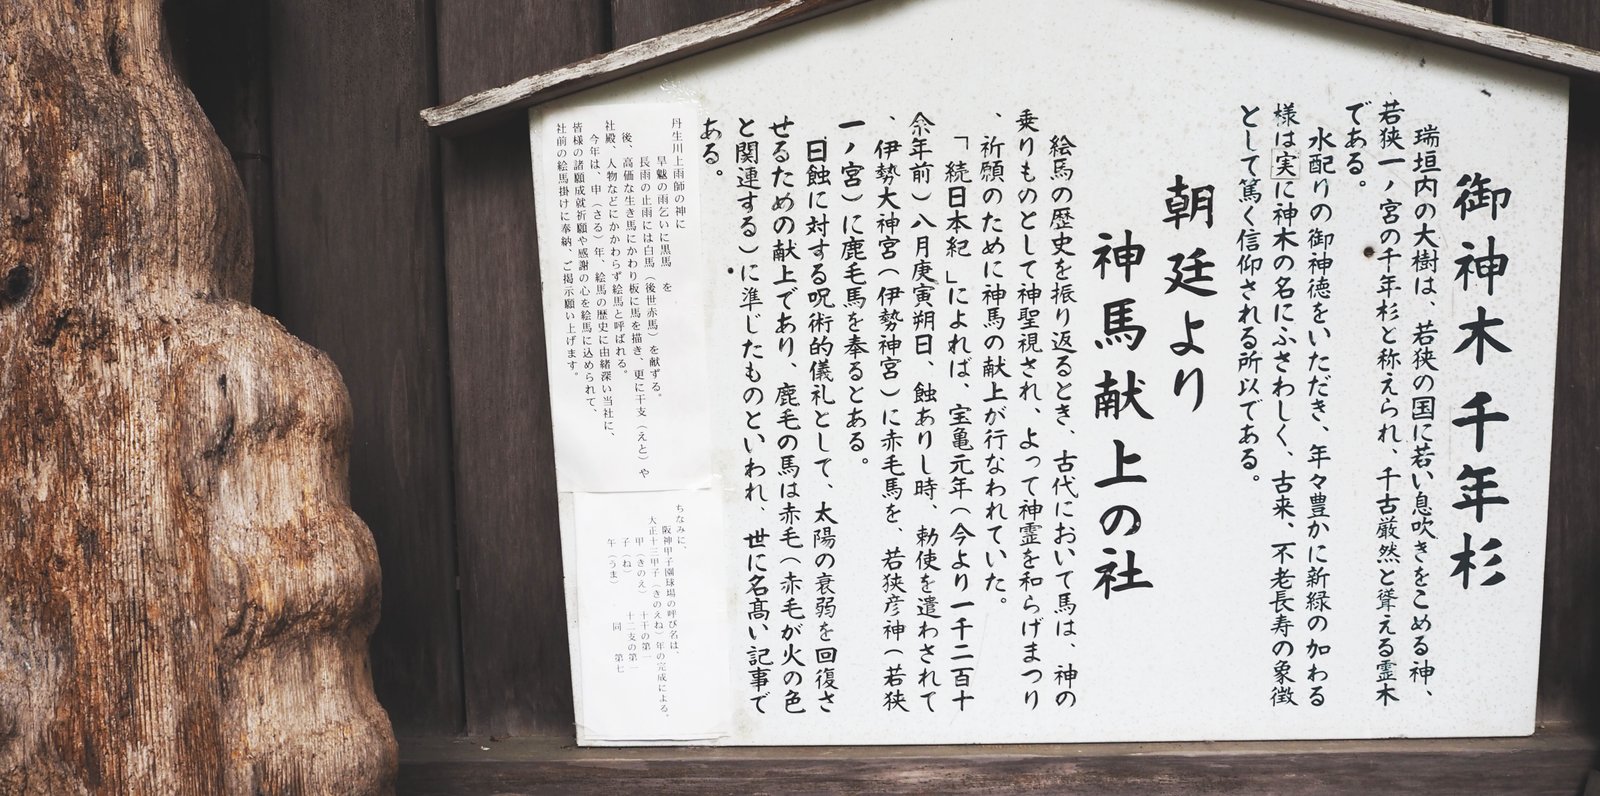 御神木千年杉
瑞垣内の大樹は、若狭の国に若い息吹きをこめる神、
若狭一ノ宮の千年杉と称えられ、千古厳然と聳える霊木
である。
水配りの御神徳をいただき、年々豊かに新緑の加わる
様は実に神木の名にふさわしく、古来、不老長寿の象徴
として篤く信仰される所以である。
朝廷より
神馬献上の社
絵馬の歴史を振り返るとき、古代において馬は、神の
乗りものとして神聖視され、よって神霊を和らげまつり
、祈願のために神馬の献上が行なわれていた。
「続日本紀」によれば、宝亀元年(今より一千二百十
余年前)八月庚寅朔日、蝕ありし時、勅使を遣わされて
、伊勢大神宮(伊勢神宮)に赤毛馬を、若狭彦神(若狭
一ノ宮)に鹿毛馬を奉るとある。
日蝕に対する呪術的儀礼として、太陽の衰弱を回復さ
せるための献上であり、鹿毛の馬は赤毛(赤毛が火の色
と関連する)に準じたものといわれ、世に名高い記事で
ある。
丹生川上雨師の神に
旱魃の雨乞いに黒馬 を
長雨の止雨には白馬(後世赤馬)を献ずる。
後、高価な生き馬にかわり板に馬を描き、更に干支(えと)や
社殿、人物などにかかわらず絵馬と呼ばれる。
今年は、申(さる)年、絵馬の歴史に由緒深い当社に、
皆様の諸願成就祈願や感謝の心を絵馬に込められて、
社前の絵馬掛けに奉納、ご掲示願い上げます。
ちなみに、
阪神甲子園球場の呼び名は、
大正十三甲子(きのえね)年の完成による。
甲(きのえ) 十干の第一
子(ね) 十二支の第一
午(うま) 同 第七